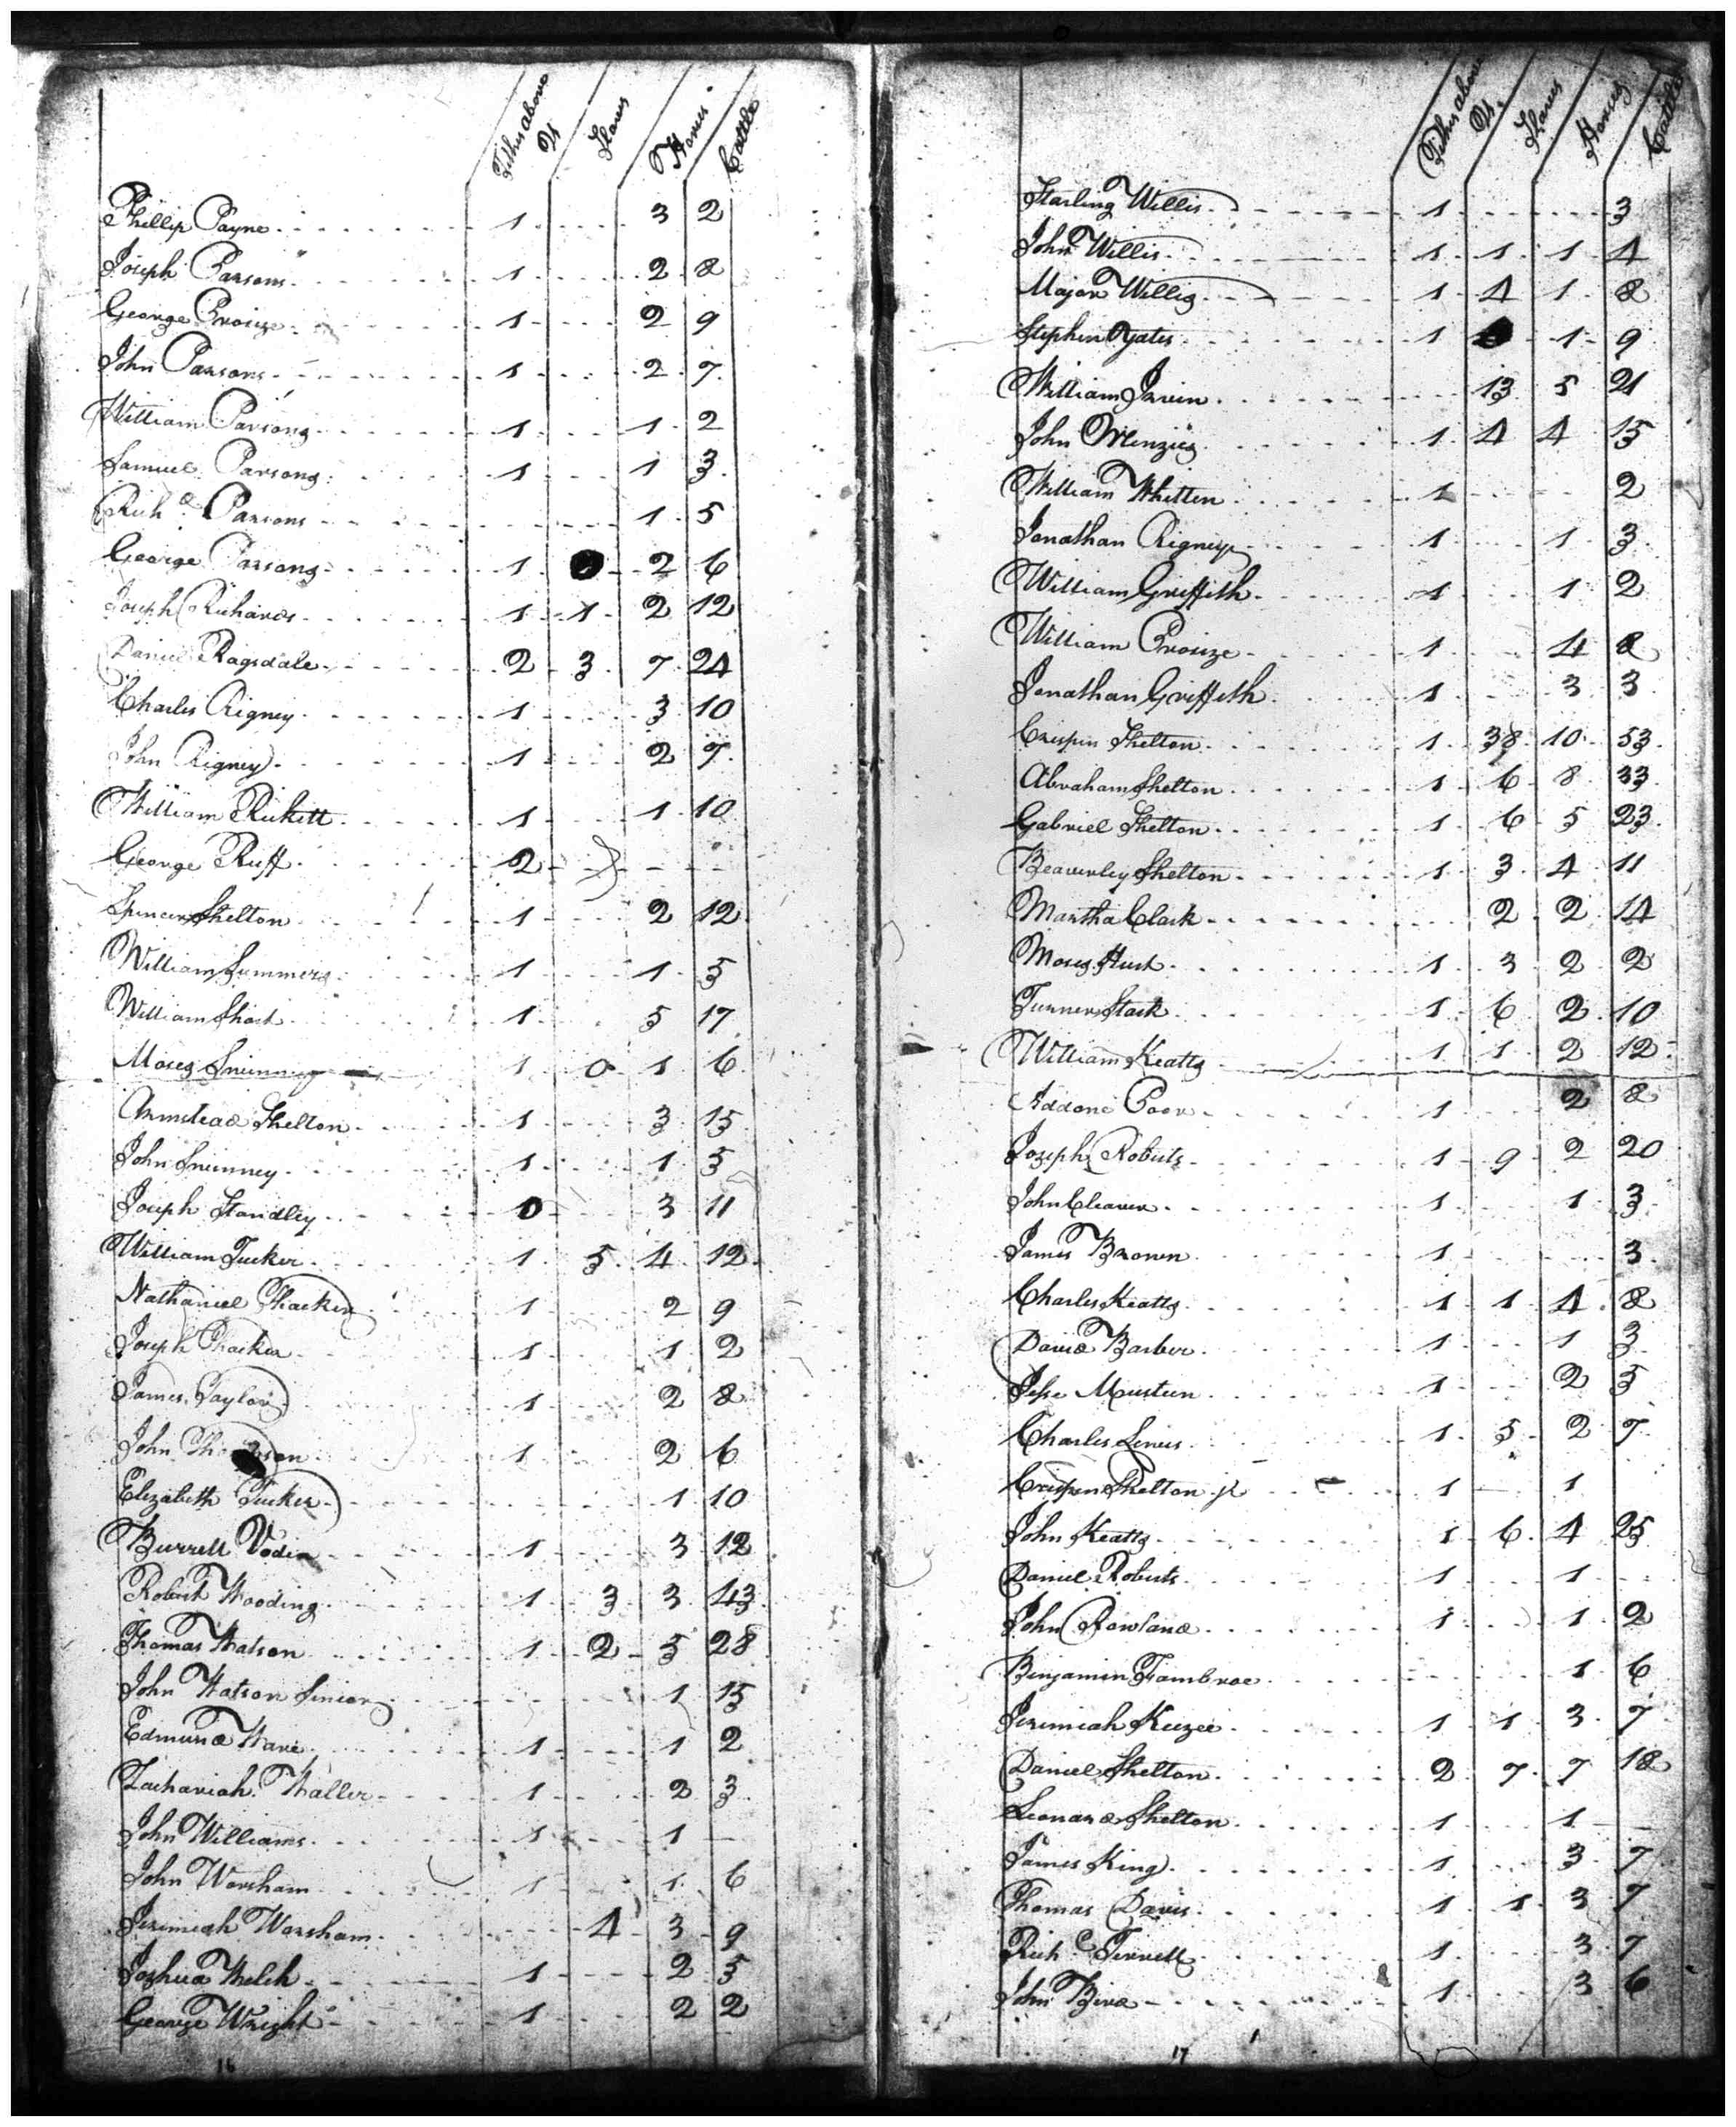 Tithes above 21 Slaves Horses Cattle
Phillip Payne 1 3 2
Joseph Parsons 1 2 8
George Prosize 1 2 9
John Parsons 1 2 7
William Parsons 1 1 2
Samuel Parsons 1 1 3
Richd Parsons 1 5
George Parsons 1 2 6
Joseph Richards 1 1 2 12
Daniel Ragsdale 2 3 7 24
Charles Rigney 1 3 10
John Rigney 1 2 7
William Rickett 1 1 10
George Ruff 2
Spencer Shelton 1 2 12
William Summers 1 1 5
William Short 1 5 17
Moses Swinney 1 0 1 6
Armstead Shelton 1 3 15
John Swinney 1 1 5
Joseph Standley 0 3 11
William Tucker 1 5 4 12
Nathaniel Thacker 1 2 9
Joseph Thacker 1 1 2
James Taylor 1 2 8
John 1 2 6
Elizabeth Tucker 1 10
Burrell Voden 1 3 12
Robert Wooding 1 3 3 43
Thomas Watson 1 2 5 28
John Watson Senior 1 15
Edmund Ware 1 1 2
Zachariah Waller 1 2 3
John Williams 1 1
John Worsham 1 1 6
Jeremiah Worsham 4 3 9
Joshua Welch 1 2 5
George Wright 1 2 2
16
Tithes above 21 Slaves Horses Cattle
Starling Willis 1 3
John Willis 1 1 1 4
Major Willis 1 4 1 8
Stephen Yates 1 1 9
William Irvin 13 5 21
John Menzies 1 4 4 15
William Whitten 1 2
Jonathan Rigney 1 1 3
William Griffith 1 1 2
William Prosize 1 4 8
Jonathan Griffeth 1 3 3
Crispin Shelton 1 38 10 53
Abraham Shelton 1 6 8 33
Gabriel Shelton 1 6 5 23
Beaverley Shelton 1 3 4 11
Martha Clark 2 2 14
Moses Hurt 1 3 2 2
Turner Stark 1 6 2 10
William Keatts 1 1 2 12
Addone Poor 1 2 8
Joseph Roberts 1 9 2 20
John Cleaver 1 1 3
James Brown 1 3
Charles Keatts 1 1 4 8
David Barber 1 1 3
Jesse Mustein 1 2 5
Charles Lewis 1 5 2 7
Crispen Shelton jr 1 1
John Keatts 1 6 4 25
Daniel Roberts 1 1
John Rowland 1 1 2
Benjamin Tambroe 1 6
Jeremiah Keezee 1 1 3 7
Daniel Shelton 2 7 7 18
Leonard Shelton 1 1
James King 1 3 7
Thomas Davis 1 1 3 7
Richd Terrell 1 3 7
John Bird 1 3 6
17